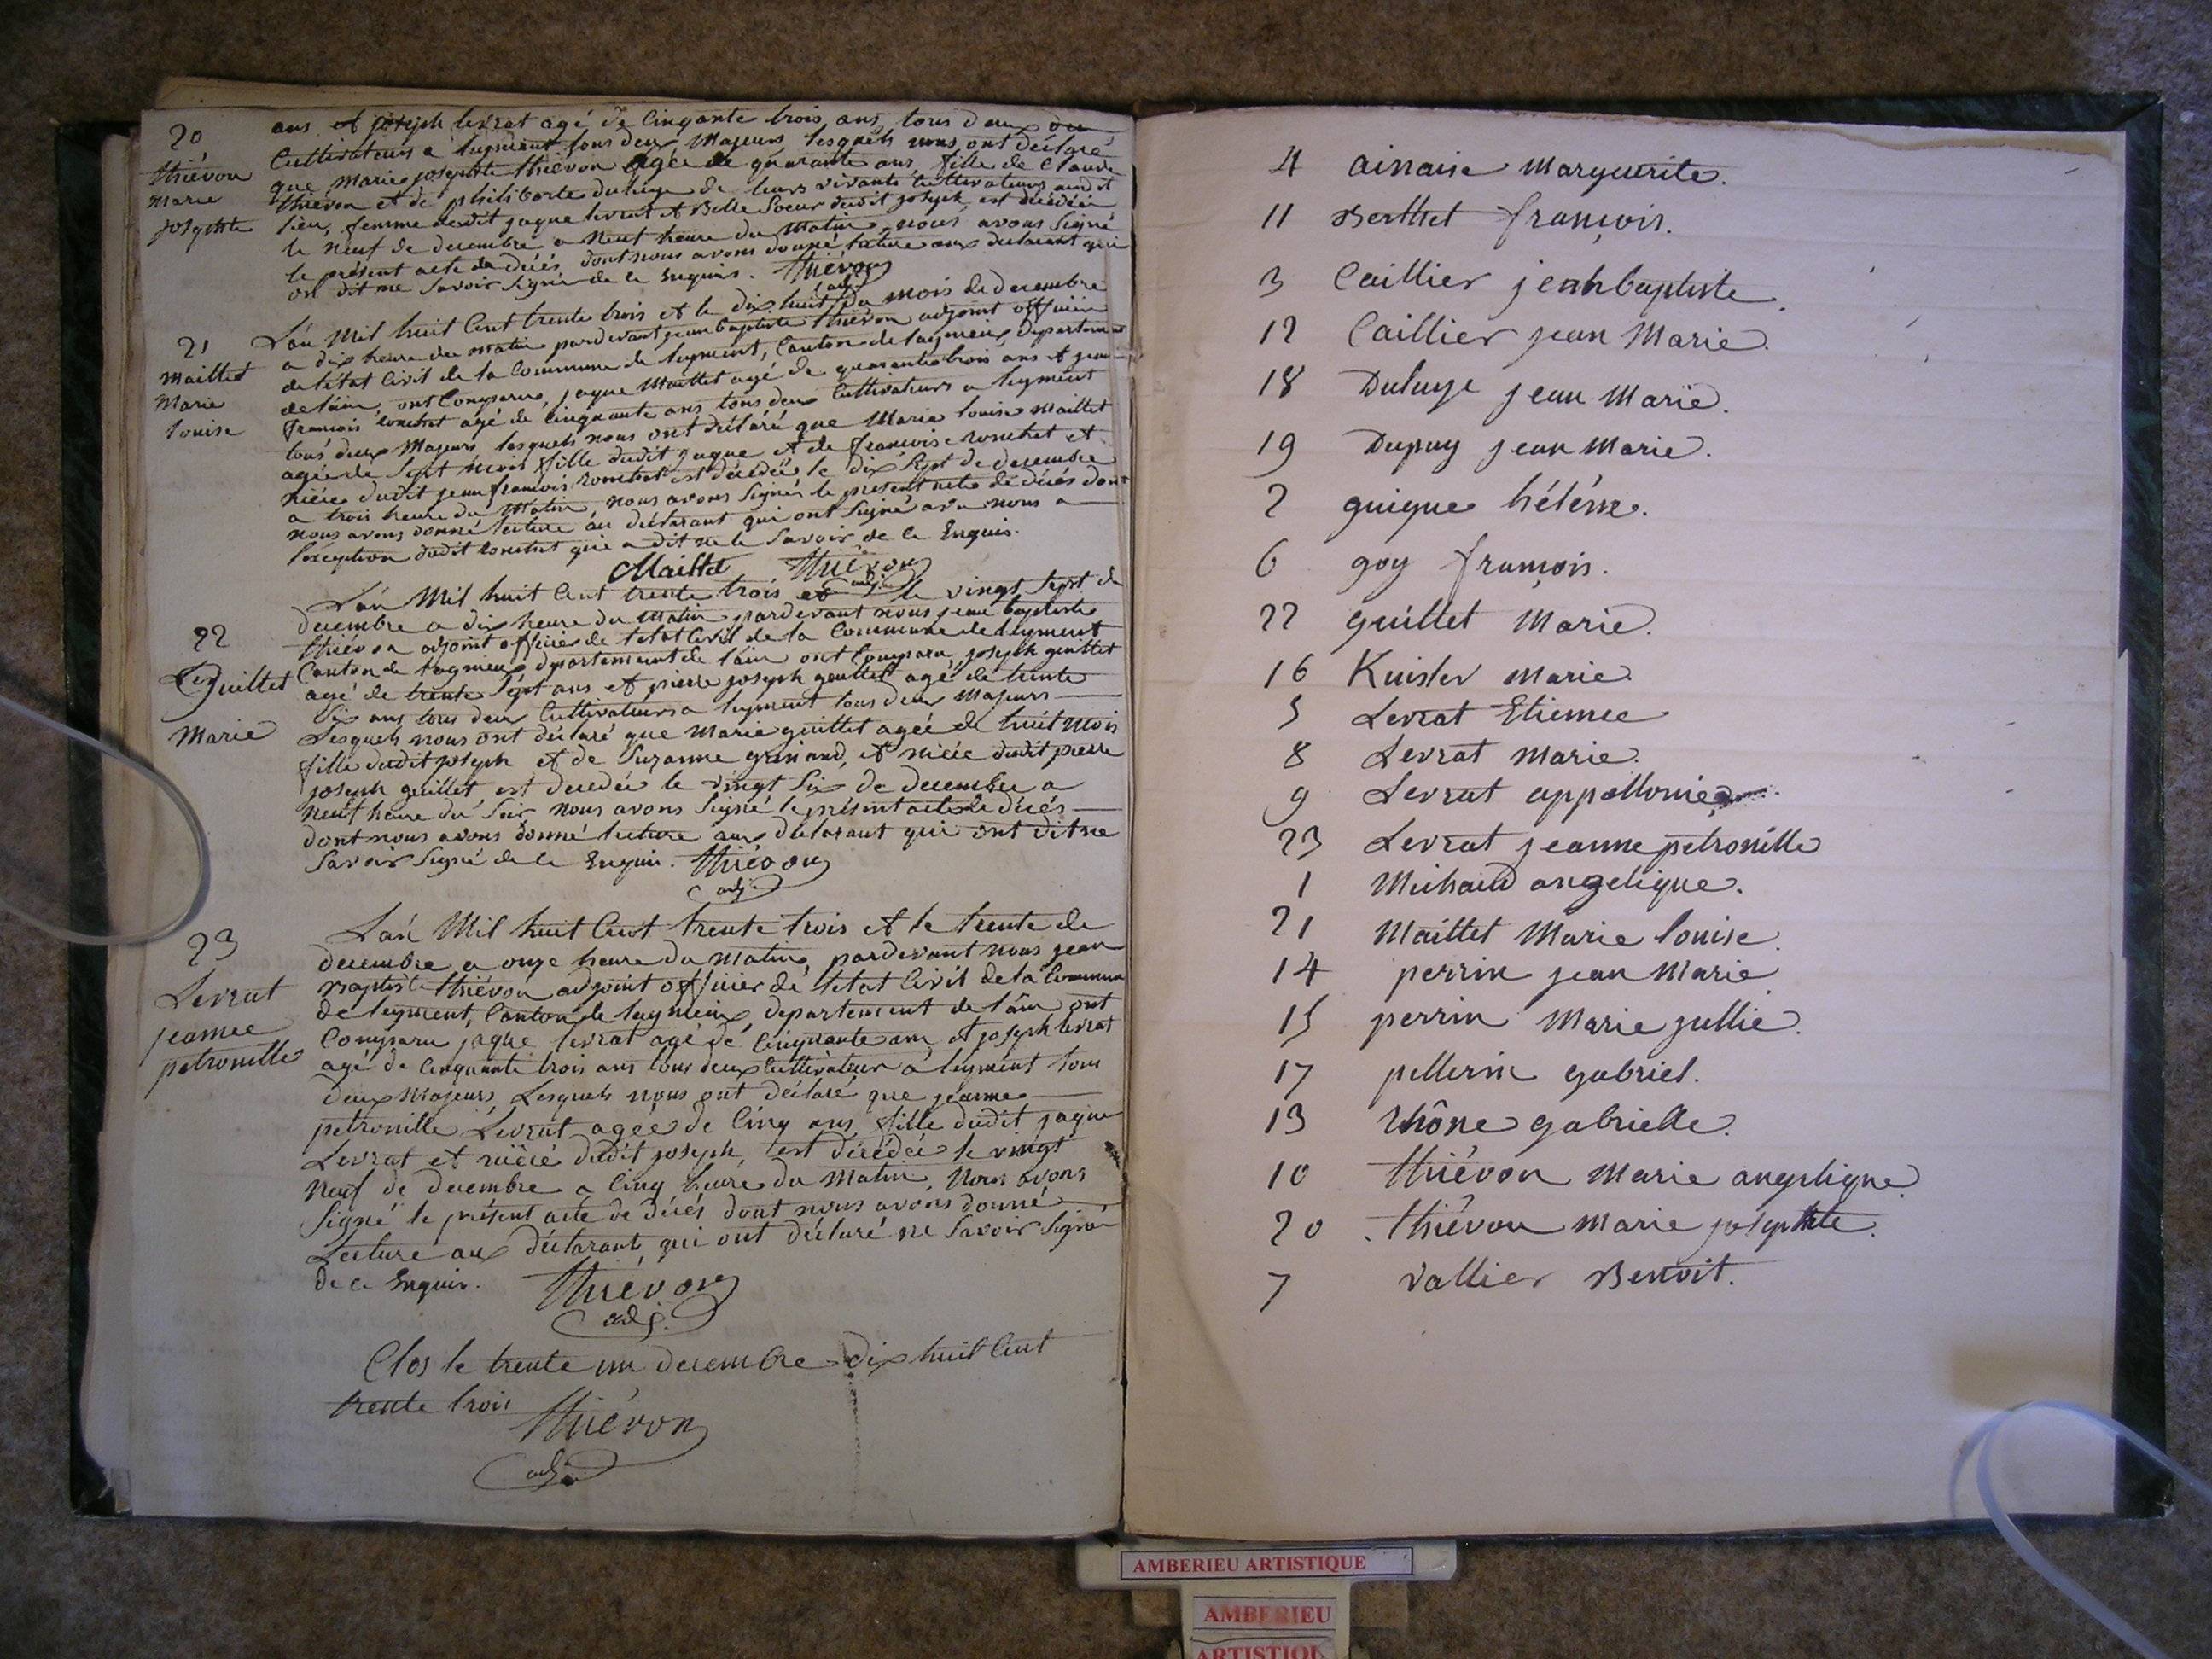 20
thiévon
marie
josephte
ans et joseph levrat agé de Cinqante trois ans, tous deux
Cultivateurs a leyment tous deux Majeurs, lesquels nous ont déclaré
que Marie josephte thiévon agée de quarante ans, fille de Claude
thiévon et de philiberte duluye de leurs vivants Cultivateurs audit
lieu, femme dudit jaque levrat et Belle Soeur dudit joseph, est décédée
le neuf de decembre a neuf heure du Matin, nous avons Signé
le présent acte de décés, dont nous avons donné lecture aux declarant qui
on dit ne Savoir Signé de ce Enquis. thiévon
adj.
21
Maillet
Marie
louise
L'an Mil huit Cent trente trois et le dix huit du mois de decembre
a dix heure du matin pardevant jean baptiste thiévon adjoint officier
de létat Civil de la Commune de leyment, Canton de lagnieu, departement
de lain, ont Comparu, jaque Maillet agé de quarente trois ans et jean
françois ronchet agé de Cinquante ans tous deux Cultivateurs a leyment
tous deux Majeurs lesquels nous ont déclaré que Marie louise Maillet
agée de Sept mois fille dudit jaque et de françoise ronchet et
niéce dudit jean françois ronchet est décédée le dix Sept de decembre
a trois heure du Matin, nous avons Signés le present acte de décés dont
nous avons donné lecture au déclarant qui ont Signé avec nous a
lexception dudit ronchet qui a dit ne le Savoir de ce Enquis.
Maillet thiévon
adj.
22
Guillet
Marie
L'an Mil huit Cent trente trois et le vingt Sept de
decembre a dix heure du Matin pardevant nous jean baptiste
thiévon adjoint officier de létat Civil de la Commune de leyment
Canton de lagnieu departement de lain ont Comparu, joseph guillet
agé de trente Sept ans et pierre joseph guillet agé de trente
Six ans tous deux Cultivateurs a leyment tous deux Majeurs
Lesquels nous ont déclaré que Marie guillet agée de huit mois
fille dudit joseph et de Suzanne grinand, et niéce dudit pierre
joseph guillet est decedée le vingt Six de decembre a
neuf heure du Soir nous avons Signé le présent acte de décés
dont nous avons donné lecture aux declarant qui ont dit ne
Savoir Signé de ce Enquis. thiévon
adj.
23
Levrat
jeanne
petronille
L'an Mil huit Cent trente trois et le trente de
decembre a onze heure du matin, pardevant nous jean
Baptiste thiévon adjoint officier de létat Civil de la Commune
de leyment, Canton de lagnieu, departement de lain ont
Comparu jaque levrat agé de Cinquante ans, et joseph levrat
agé de Cinquante trois ans tous deux Cultivateur a leyment tous
deux Majeurs, Lesquels nous ont déclaré que jeanne
petronille Levrat agée de Cinq ans, fille dudit jaque
Levrat et niéce dudit joseph, est décédée le vingt
neuf de decembre a Cinq heure du Matin, Nous avons
Signé le présent acte de décés dont nous avons donné
Lecture aux déclarant, qui ont déclaré ne Savoir Signé
de ce Enquis. Thiévon
adj.
Clos le trente un decembre dix huit Cent
trente trois thiévon
adj.
4 ainaise Marguerite.
11 Berthet françois.
3 Caillier jean baptiste.
12 Caillier jean Marie.
18 Duluye jean Marie.
19 Dupuy jean Marie.
2 guigue hélène.
6 goy françois.
22 guillet Marie.
16 Kuister Marie.
5 Levrat Etienne
8 Levrat Marie.
9 Levrat appollonie
23 Levrat jeanne petronille
1 Michaud angelique.
21 Maillet Marie louise.
14 perrin jean Marie
15 perrin Marie jullie.
17 pellerin gabriel.
13 rhône gabrielle.
10 thiévon Marie angelique.
20 thiévon Marie josephte.
7 vallier Benoit.
AMBERIEU ARTISTIQUE
AMBERIEU